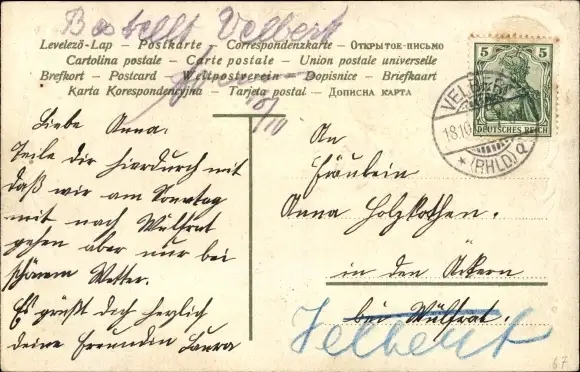 Bestellt Velbert
Levelező-Lap — Postkarte — Correspondenzkarte — Открытое-письмо
Cartolina postale — Carte postale — Union postale universelle
Brefkort — Postcard — Weltpostverein — Dopisnice — Briefkaart
Karta Korespondencyjna — Tarjeta postal — Дописна карта
16/10
5 5
DEUTSCHES REICH
VELBERT
18.10
* (RHLD) a
Liebe Anna.
Teile dir hierdurch mit
daß wir am Sonntag
mit nach Wülfrat
gehen aber nur bei
schönem Wetter.
Es grüßt dich herzlich
deine Freundin Laura
An
Fräulein
Anna Holzkothen.
in den Äckern
bei Wülfrat.
Velbert
67